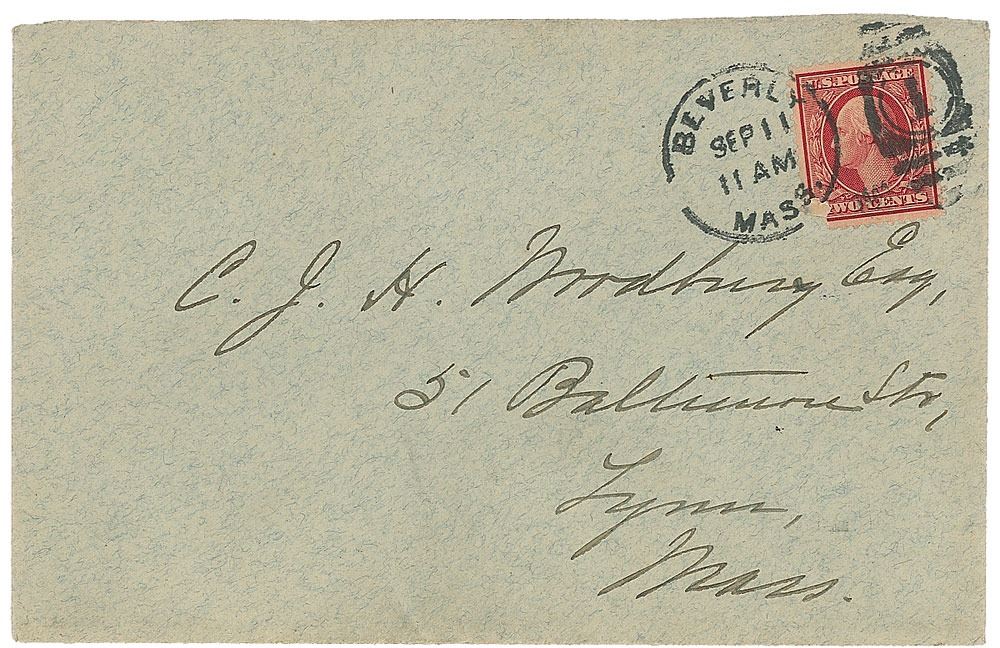 BEVERLY
SEP 11
11 AM
MASS.
U.S. POSTAGE
TWO CENTS
C. J. H. Woodbury Esq,
51 Baltimore Str,
Lynn,
Mass.